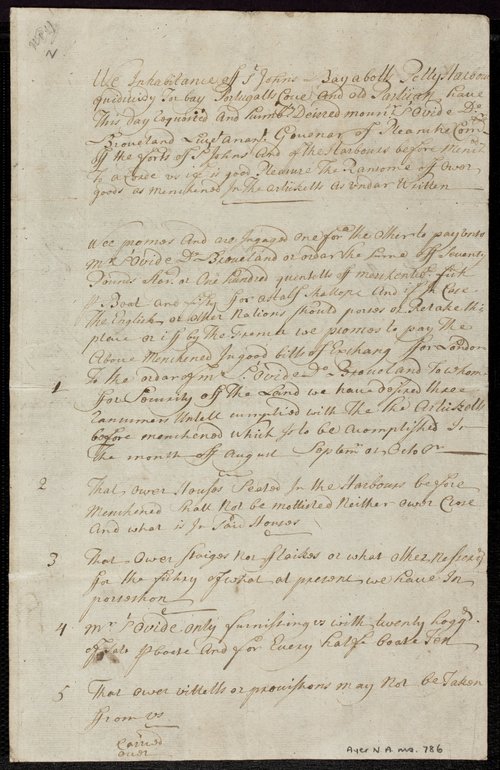 N
We Inhabitance off St Johns Bay a boll Petty Harbour
quidividy Tor bay Portugall Cove And old Parlican have
This Day Requisted And humbly Desired mounr St Ovide De
Broueland Liuetanant Govenar of Pleasance Com
off the forts of St Johns And of the Harbours before Menc
To acorde us if is good Pleasure The Ransome off ower
goods as menchened In the artickells As under Written
Wee promes And are Ingaged one for the other to pay unto
mr St Ovide De Broueland or order the Sume off Seventy
Pounds Star. or One hundred quentells off merchentable fish
Boat and fifty for a half Shallope And if in Case
the English or other Nations should porses or Retake this
place or iff by the French we promes to pay the
Above Menchened In good bills of Exchang for London
To the order of mr St Ovide De Broueland To whome
1 for Security off the Land we have desired three
untell cumplied with the the Artickells
before menchened which Is to be acomplished In
the month off August Septemr or Octobr
2 That ower Houses Seated In the Harbours before
Menchened Shall Not be mollisted Neither ower Close
And what is In Said Houses
3 That ower Staiges Nor flaikes or what other Nessery
for the fishry of what at present we have In
porseshon
4 Mr St Ovide only furnishing us with twenty hoggd
of Salt boate And for Every halfe boate Ten
5 That ower vittells or provistions may Not be Taken
from us
Caried
over
Ayer N.A. ms. 786